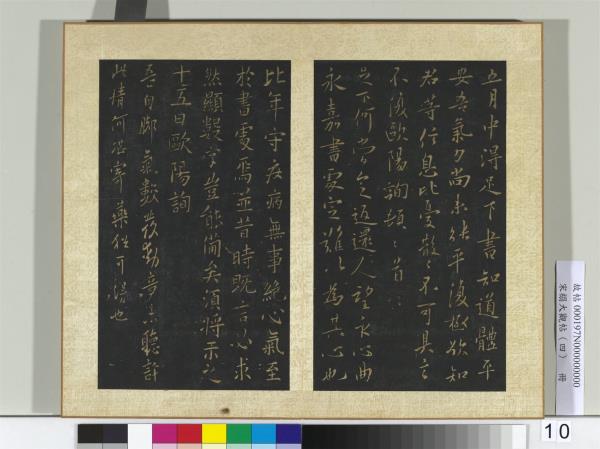 五月中得足下書知道體平
安吾氣力尚未能平復極欲知
君等信息比憂散散不可具言
不復歐陽詢頓頓首首
足下何當今返還人望永心曲
永嘉書處定難以為其心也
比年守疾病無事絶心氣至
於書處焉並昔時既言必求
然顯鍐字豈能備矣湏將示之
十五日歐陽詢
吾自腳氣數發動竟未聽許
此情何堪寄藥性可傷也
故帖 000197N000000000
宋搨大觀帖(四) 冊
10